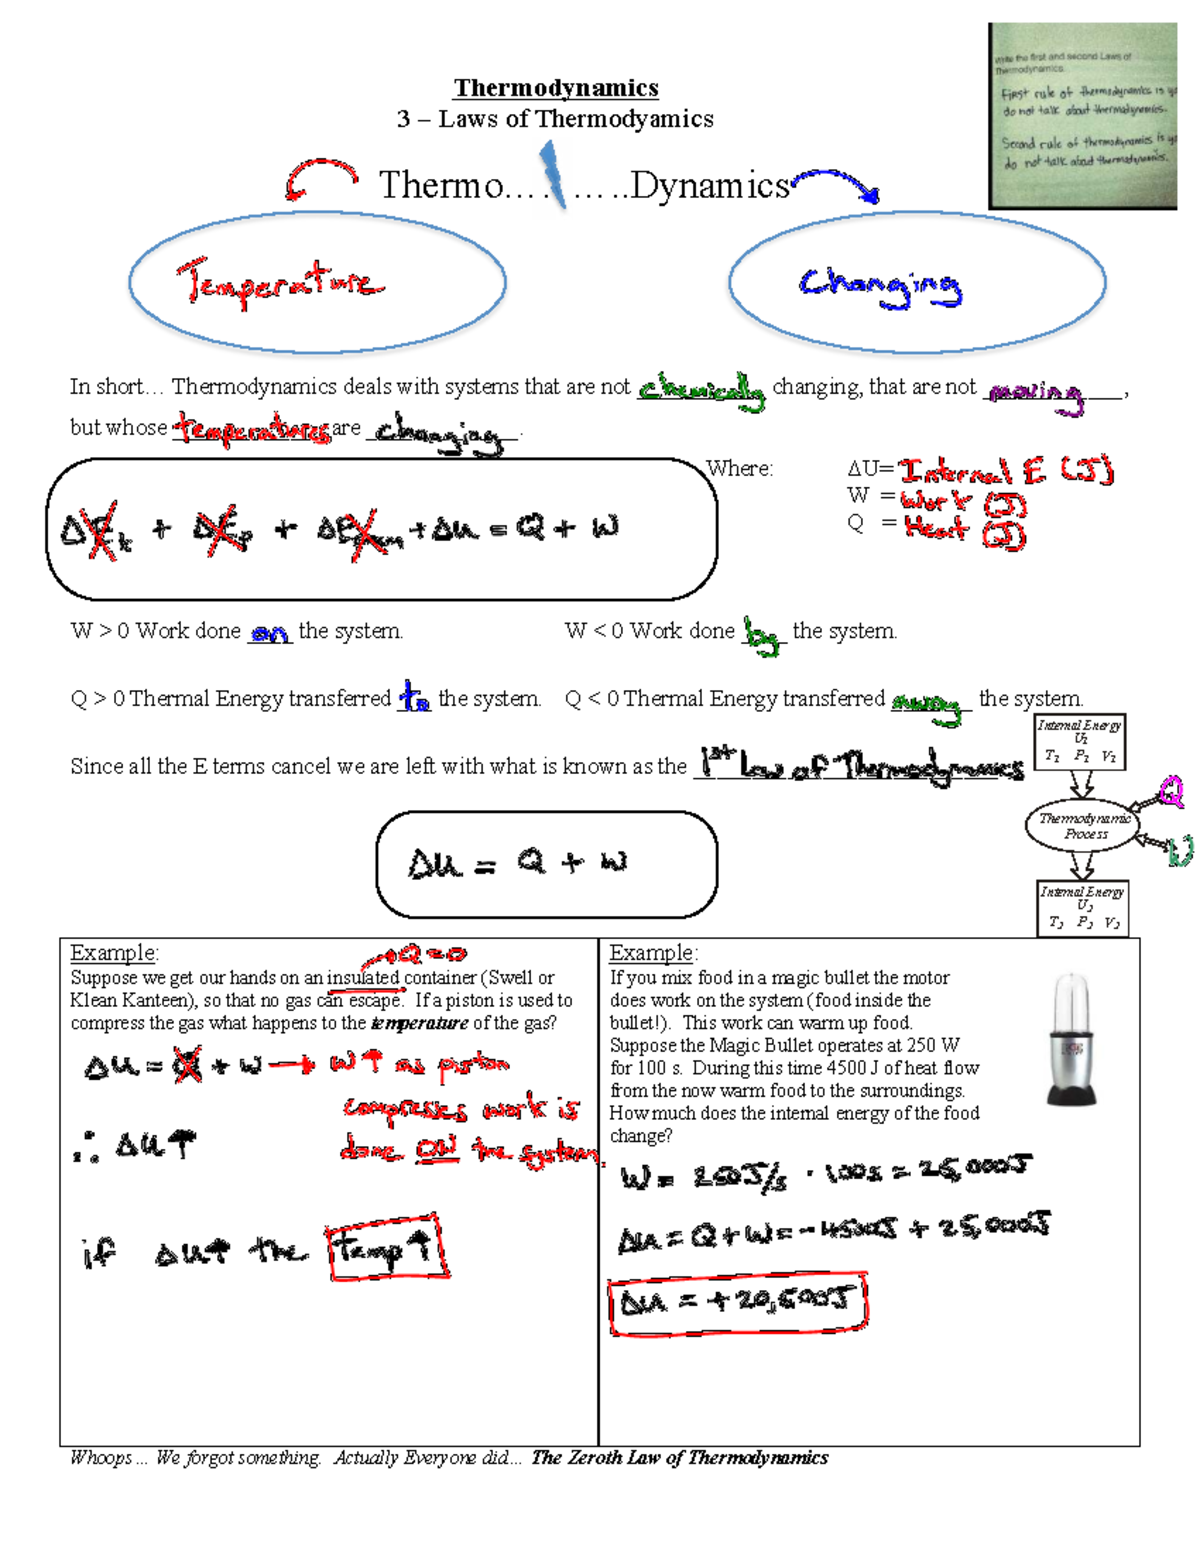 Thermodynamics
3 – Laws of Thermodyamics
Write the first and second Laws of
Thermodynamics.
First rule of thermodynamics is
do not talk about thermodynamics.
Second rule of thermodynamics is
do not talk about thermodynamics.
Thermo... . ... ..Dynamics
Temperature
Changing
In short... Thermodynamics deals with systems that are not chemically changing, that are not moving,
but whose temperatures are changing.
Where:
ΔU= Internal E (J)
W = Work (J)
Q = Heat (J)
ΔEk + ΔEp + ΔEchem + ΔU = Q + W
W > 0 Work done on the system. W < 0 Work done by the system.
Q > 0 Thermal Energy transferred to the system. Q < 0 Thermal Energy transferred away the system.
Since all the E terms cancel we are left with what is known as the 1st Law of Thermodynamics
ΔU = Q + W
Internal Energy
U2
T2 P2 V2
Q
Thermodynamic
Process
W
Internal Energy
U2
T2 P2 V2
Example:
→ Q = 0
Suppose we get our hands on an insulated container (Swell or
Klean Kanteen), so that no gas can escape. If a piston is used to
compress the gas what happens to the temperature of the gas?
ΔU = Q + W → W↑ as piston
compresses work is
done ON the system.
∴ ΔU↑
if ΔU↑ the Temp↑
Example:
If you mix food in a magic bullet the motor
does work on the system (food inside the
bullet!). This work can warm up food.
Suppose the Magic Bullet operates at 250 W
for 100 s. During this time 4500 J of heat flow
from the now warm food to the surroundings.
How much does the internal energy of the food
change?
W = 250J/s · 100s = 25,000J
ΔU = Q + W = -4500J + 25,000J
ΔU = +20,500J
Whoops... We forgot something. Actually Everyone did... The Zeroth Law of Thermodynamics